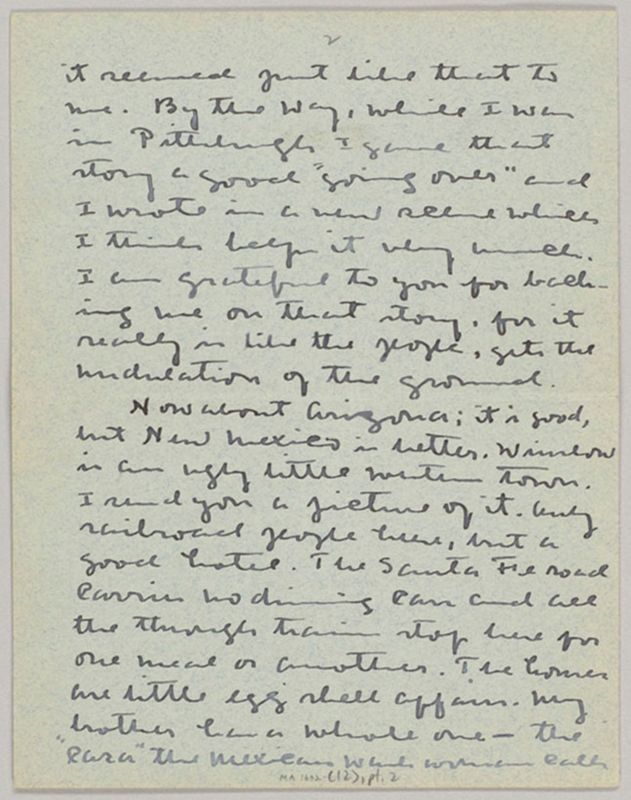 2
it seemed just like that to
me. By the way, while I was
in Pittsburgh I gave that
story a good "going over" and
I wrote in a new scene which
I think helps it very much.
I am grateful to you for back-
ing me on that story, for it
really is like the people, gets the
undulation of the ground.
Now about Arizona; it is good,
but New Mexico is better. Winslow
is an ugly little western town.
I send you a picture of it. Only
railroad people here, but a
good hotel. The Santa Fe road
carries no dining cars and all
the through trains stop here for
one meal or another. The houses
are little egg shell affairs. My
brother has a whole one — the
"casa" the Mexican wash woman calls
MA 1602 (12), pt. 2